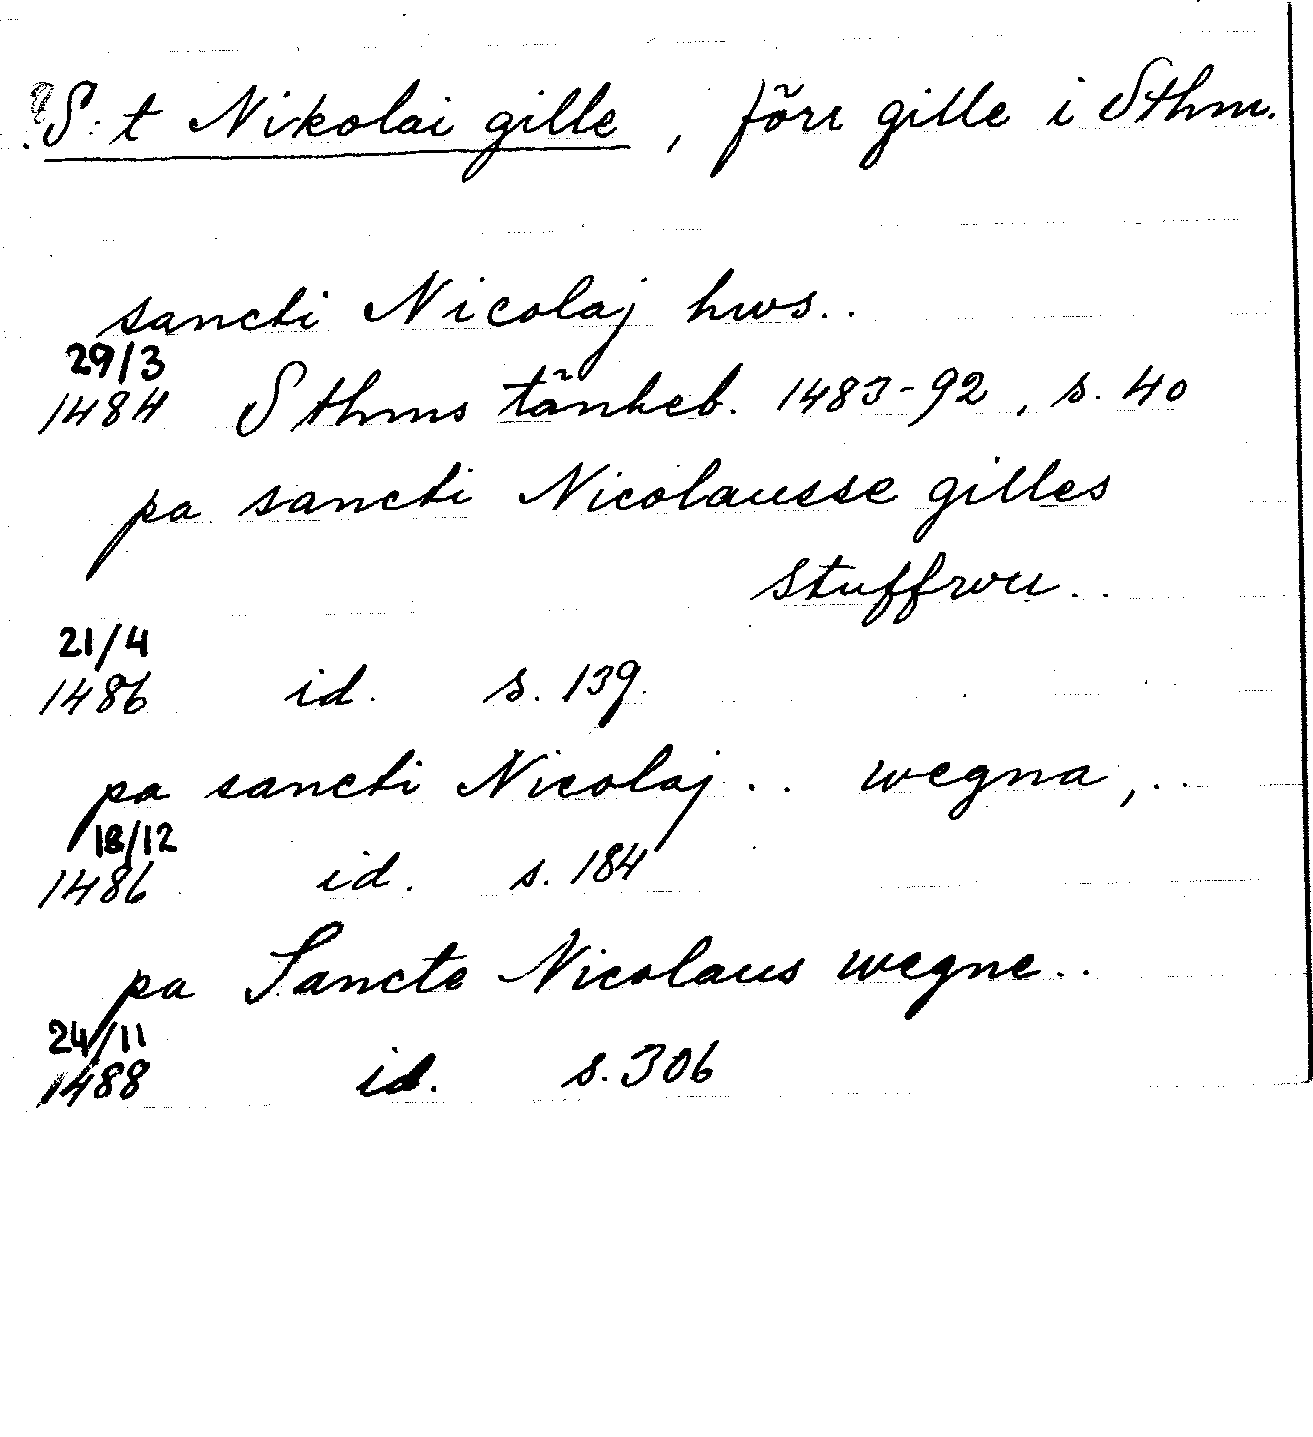 S:t Nikolai gille, förr gille i Sthm.
sancti Nicolaj hws..
29/3
1484 Sthms tänkeb. 1483-92, s. 40
pa sancti Nicolausse gilles
stuffwu..
21/4
1486 id. s. 139
pa sancti Nicolaj.. wegna,..
18/12
1486 id. s. 184
pa Sancte Nicolaus wegne..
24/11
1488 id. s. 306